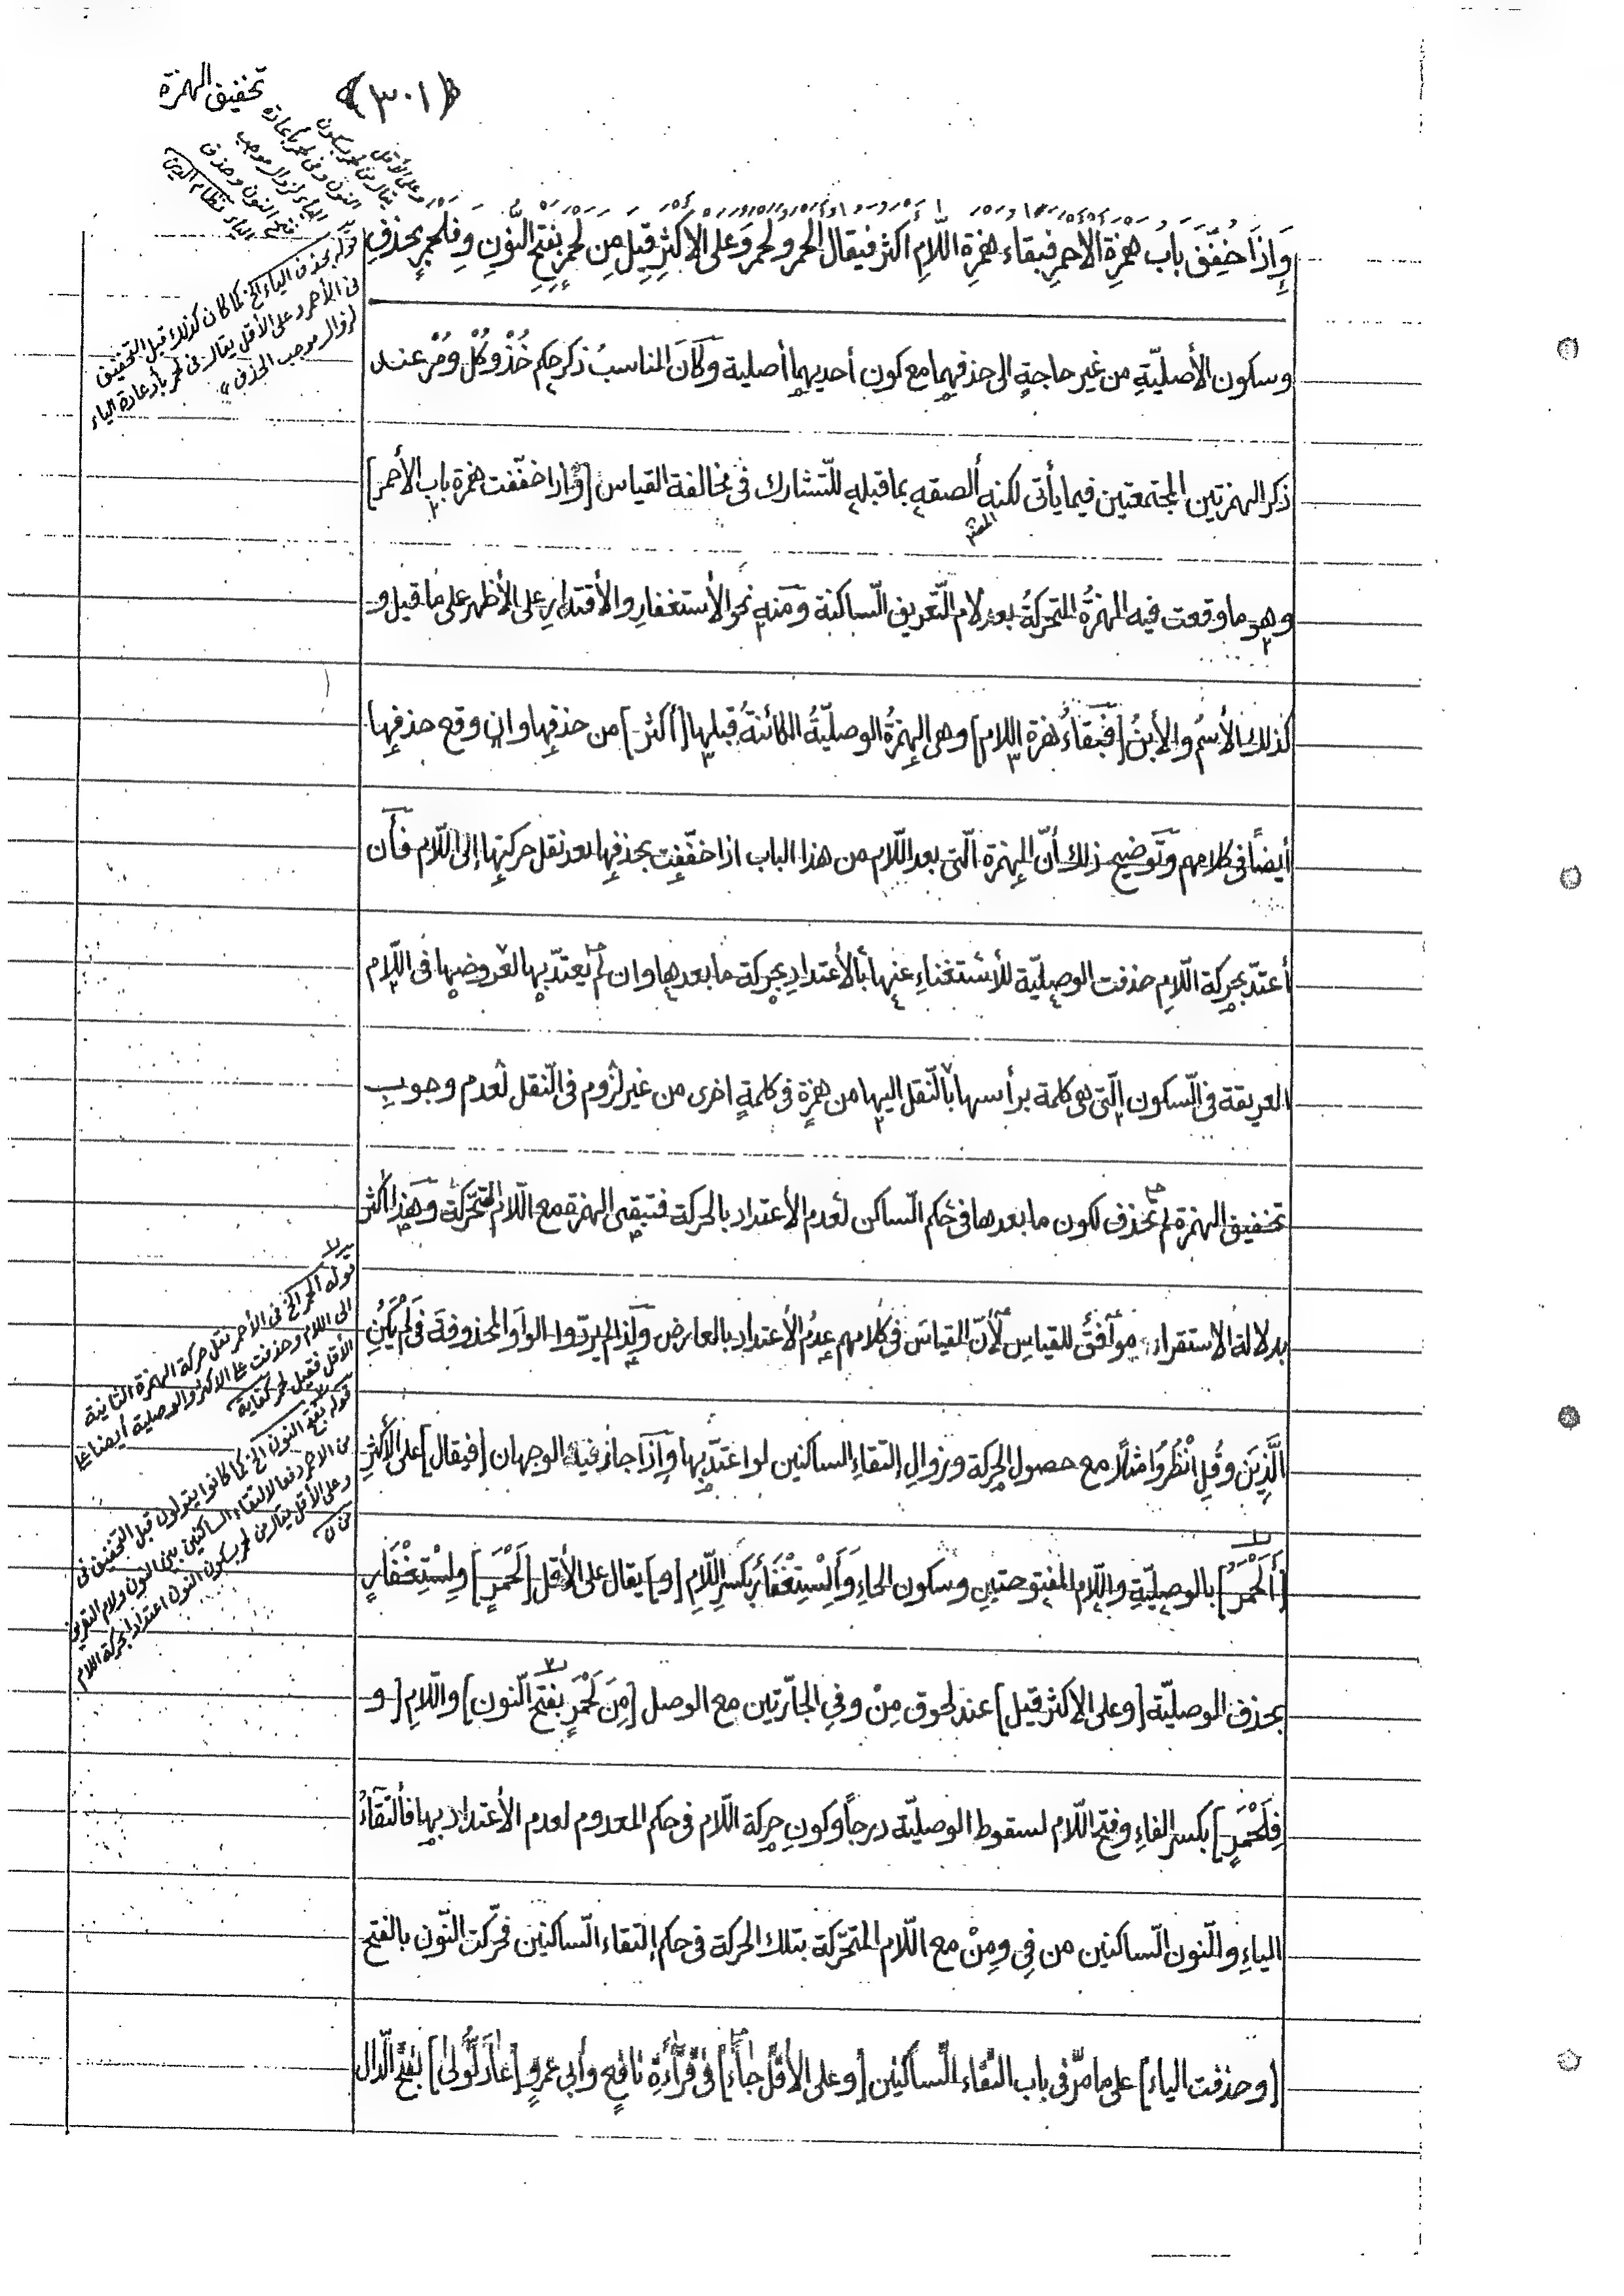 ﴿٣٠١﴾
تخفيف الهمزة
وَإِذَا خُفِّفَ بَابُ هَمْزَةِ الاحمرِ فبقاء همزةِ اللّامِ أكثر فيقال الحمر ولحمر وعلى الاكثرِ قِيلَ مِنَ لَحْمَرِ بفَتْحِ النُّونِ وَفِلَحْمَرِ بحذفِ
وسكون الأصليّةِ من غير حاجةٍ الى حذفهما مع كون أحديهما أصلية وكَانَ المناسبُ ذكر حكم خُذْ وكُلْ ومُرْ عند
ذكر الهمزتين المجتمعتين فيما يأتى لكنه ألصقه بما قبله للتّشارك فى مخالفة القياس [وَإذا خفّفت همزة باب الأحمر]
وهو ما وقعت فيه الهمزةُ المتحركةُ بعد لام التّعريف السّاكنة ومنه نحو الأستغفارِ والأقتدارِ على الأظهر على ما قيل و
كذلك الأسمُ والأبنُ [فَبَقاءُ همزة اللام] وهى الهمزةُ الوصليّةُ الكائنةُ قبلها [أكثر] من حذفها وان وقع حذفها
أيضًا فى كلامهم وتوضيح ذلك أنّ الهمزة الّتى بعد اللّام من هذا الباب اذا خفّفت بحذفها بعد نقل حركتها إلى اللّام فأن
أعتدّ بحركة اللّامِ حذفت الوصليّة للأستغناءِ عنها بالأعتدادِ بحركة ما بعدها وان لم يعتدّ بها لعروضها فى اللّام
العريقة فى السّكون الّتى هى كلمة برأسها بالنّقل اليها من همزةٍ فى كلمةٍ اخرى من غير لزوم فى النّقل لعدم وجوبِ
تخفيف الهمزة لم تحذف لكون ما بعدها فى حُكم السّاكن لعدم الأعتداد بالحركة فتبقى الهمزة مع اللّام المتحرّكة وهذا أكثر
بدلالة الاستقراء موآفق للقياس لأنّ القياسَ فى كلامهم عدمُ الأعتداد بالعارض ولِذا لم يردّوا الواو المحذوفة فى لَمْ يَكُنِ
الَّذِينَ وقُلِ انْظُرُوا مثلاً مع حصول الحركة وزوالِ إلتقاءِ الساكنين لو اعتدّ بها وإذا جاز فيه الوجهان [فيقال] على الأكثرِ
[أَلَحْمَرُ] بالوصليّةِ واللّام المفتوحتينِ وسكون الحاءِ وَأَلِسْتِغْفَارُ بكسرِ اللّامِ [و] يقال على الأقل [لَحْمَرٍ] ولِسْتِغْفَارٍ
بحذف الوصليّة [وعلى الاكثر قيل] عند لحوق مِنْ وفى الجارّتين مع الوصل [مِنَ لَحْمَرِ بفتح النّون] واللّام [و
فِلَحْمَرِ] بكسر الفاءِ وفتح اللّام لسقوط الوصليّة درجاً وكونِ حركة اللّام فى حكم المعدوم لعدم الأعتداد بها فألتقاءُ
الياءِ والنّون السّاكنين من فِى ومِنْ مع اللّام المتحرّكة بتلك الحركة فى حكم إلتقاء السّاكنين فحرّكت النّون بالفتح
[وحذفت الياء] على ما مرّ فى باب التقاء السّاكنين [وعلى الأقلّ جاءَ] فى قرَاءَةِ نافِعٍ وأبى عمرٍو [عَادَ لُّولىٰ] بفتح الدّال
قوله بحذف الياء الخ كما كان كذلك قبل التخفيف
فى الأحمر وعلى الأقل يقال فى لحمر بأعادة الياء
لزوال موجب الحذف
قوله الحمر الخ فى الأحمر نقل حركة الهمزة الثانية
الى اللام وحذفت على الاكثر والوصلية أيضا على
الأقل فقيل لحمر كفاية
قوله بفتح النون الخ كما كانوا يقولون قبل التخفيف فى
من الاحمر دفعا لالتقاء الساكنين بين النون ولام التعريف
وعلى الأقل يقال من لحمر بسكون النون اعتدادا بحركة اللام